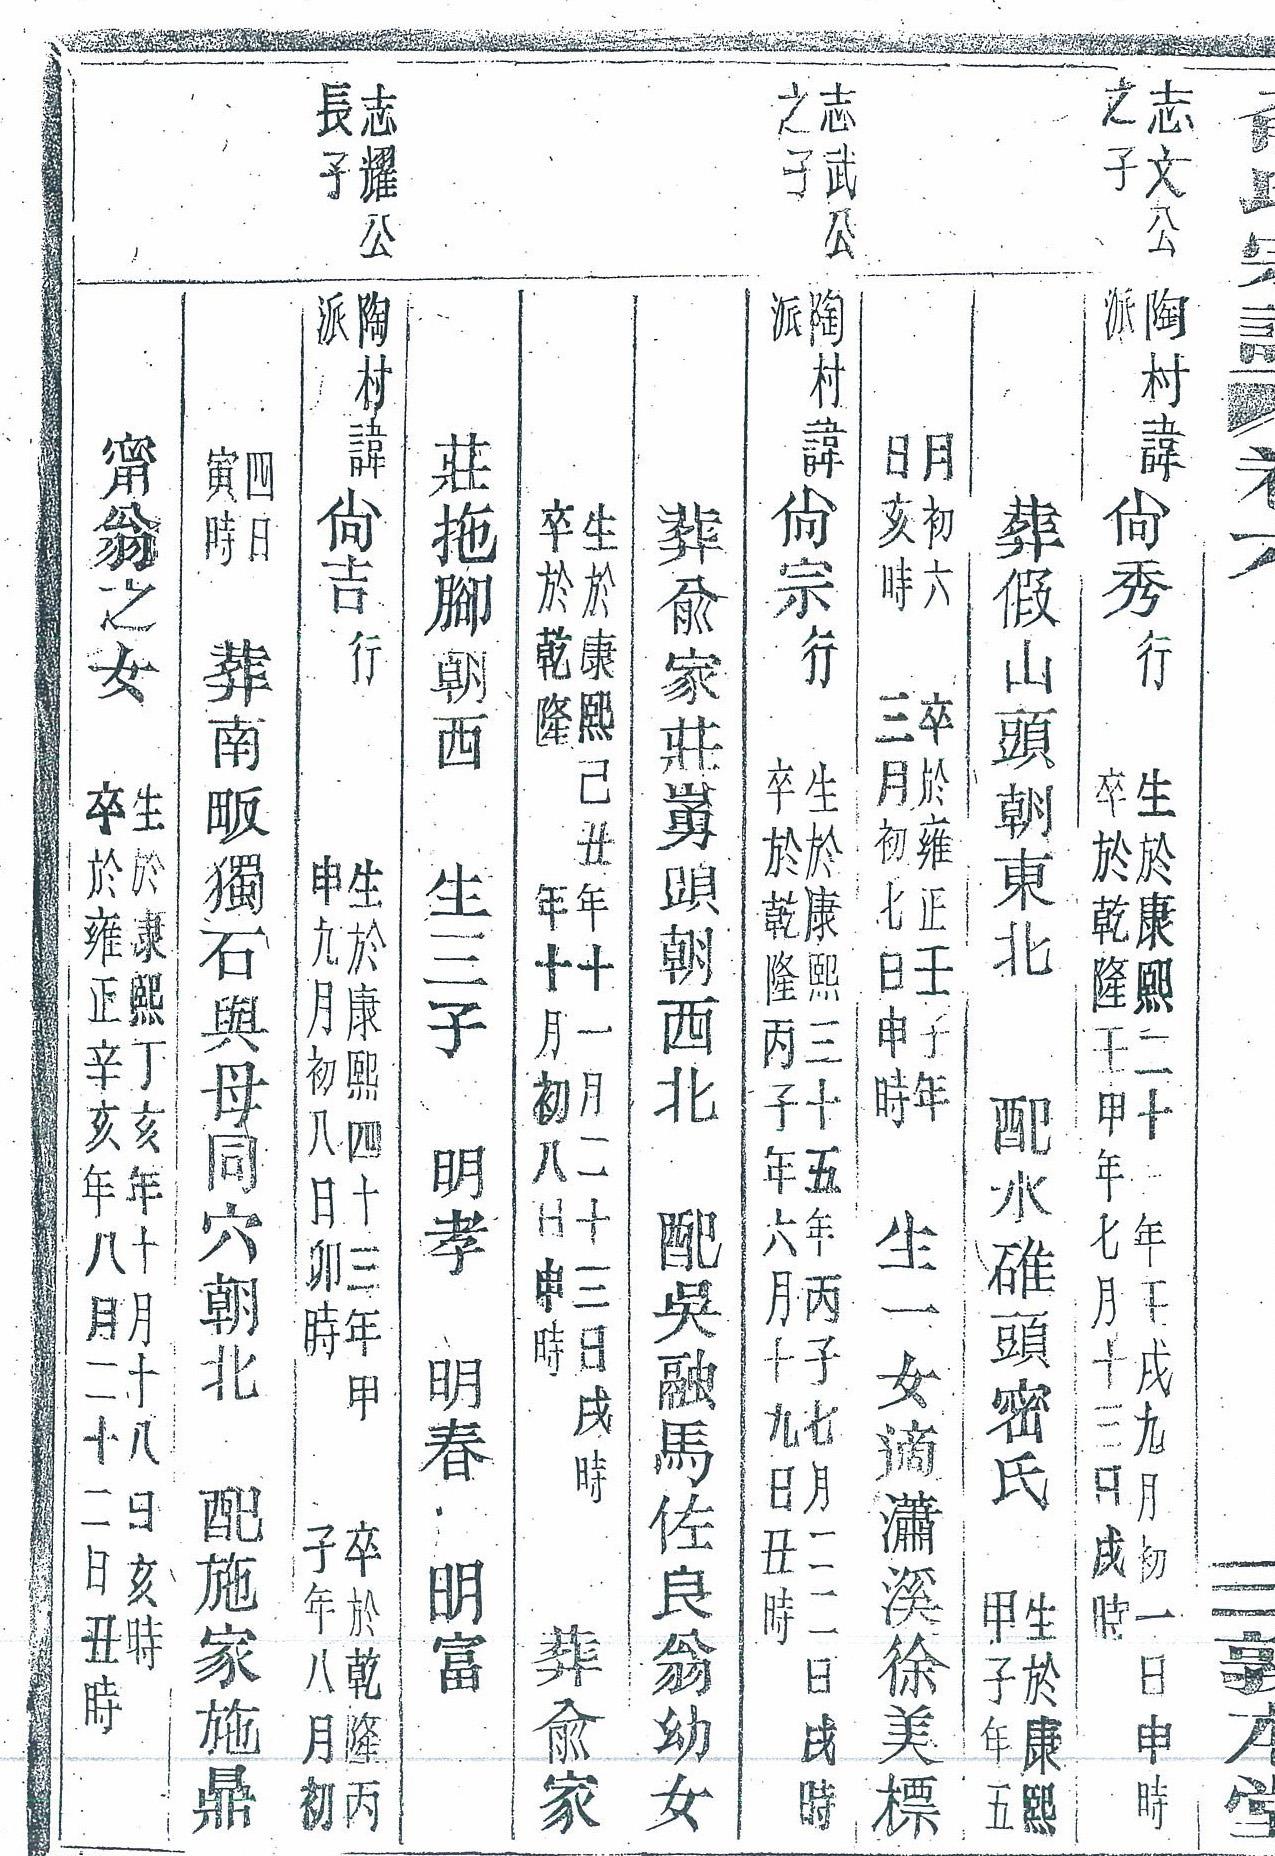 氏宗譜 卷六 三 敦本堂
志文公
之子
陶村
派
諱尙秀行
生於康熙二十一年壬戌九月初一日申時
卒於乾隆壬申年七月十三日戌時
葬假山頭朝東北 配水碓頭密氏
生於康熙
甲子年五
月初六
日亥時
卒於雍正壬子年
三月初七日申時
生一女適瀟溪徐美標
志武公
之子
陶村
派
諱尙宗行
生於康熙三十五年丙子七月二二日戌時
卒於乾隆丙子年六月十九日丑時
葬俞家莊嶴頭朝西北 配吳融馬佐良翁幼女
生於康熙己丑年十一月二十三日戌時
卒於乾隆 年十月初八日申時
葬俞家
莊拖腳朝西 生三子 明孝 明春 明富
志耀公
長子
陶村
派
諱尙吉行
生於康熙四十三年甲
申九月初八日卯時
卒於乾隆丙
子年八月初
四日
寅時
葬南畈獨石與母同穴朝北 配施家施鼎
甯翁之女
生於康熙丁亥年十月十八日亥時
卒於雍正辛亥年八月二十二日丑時